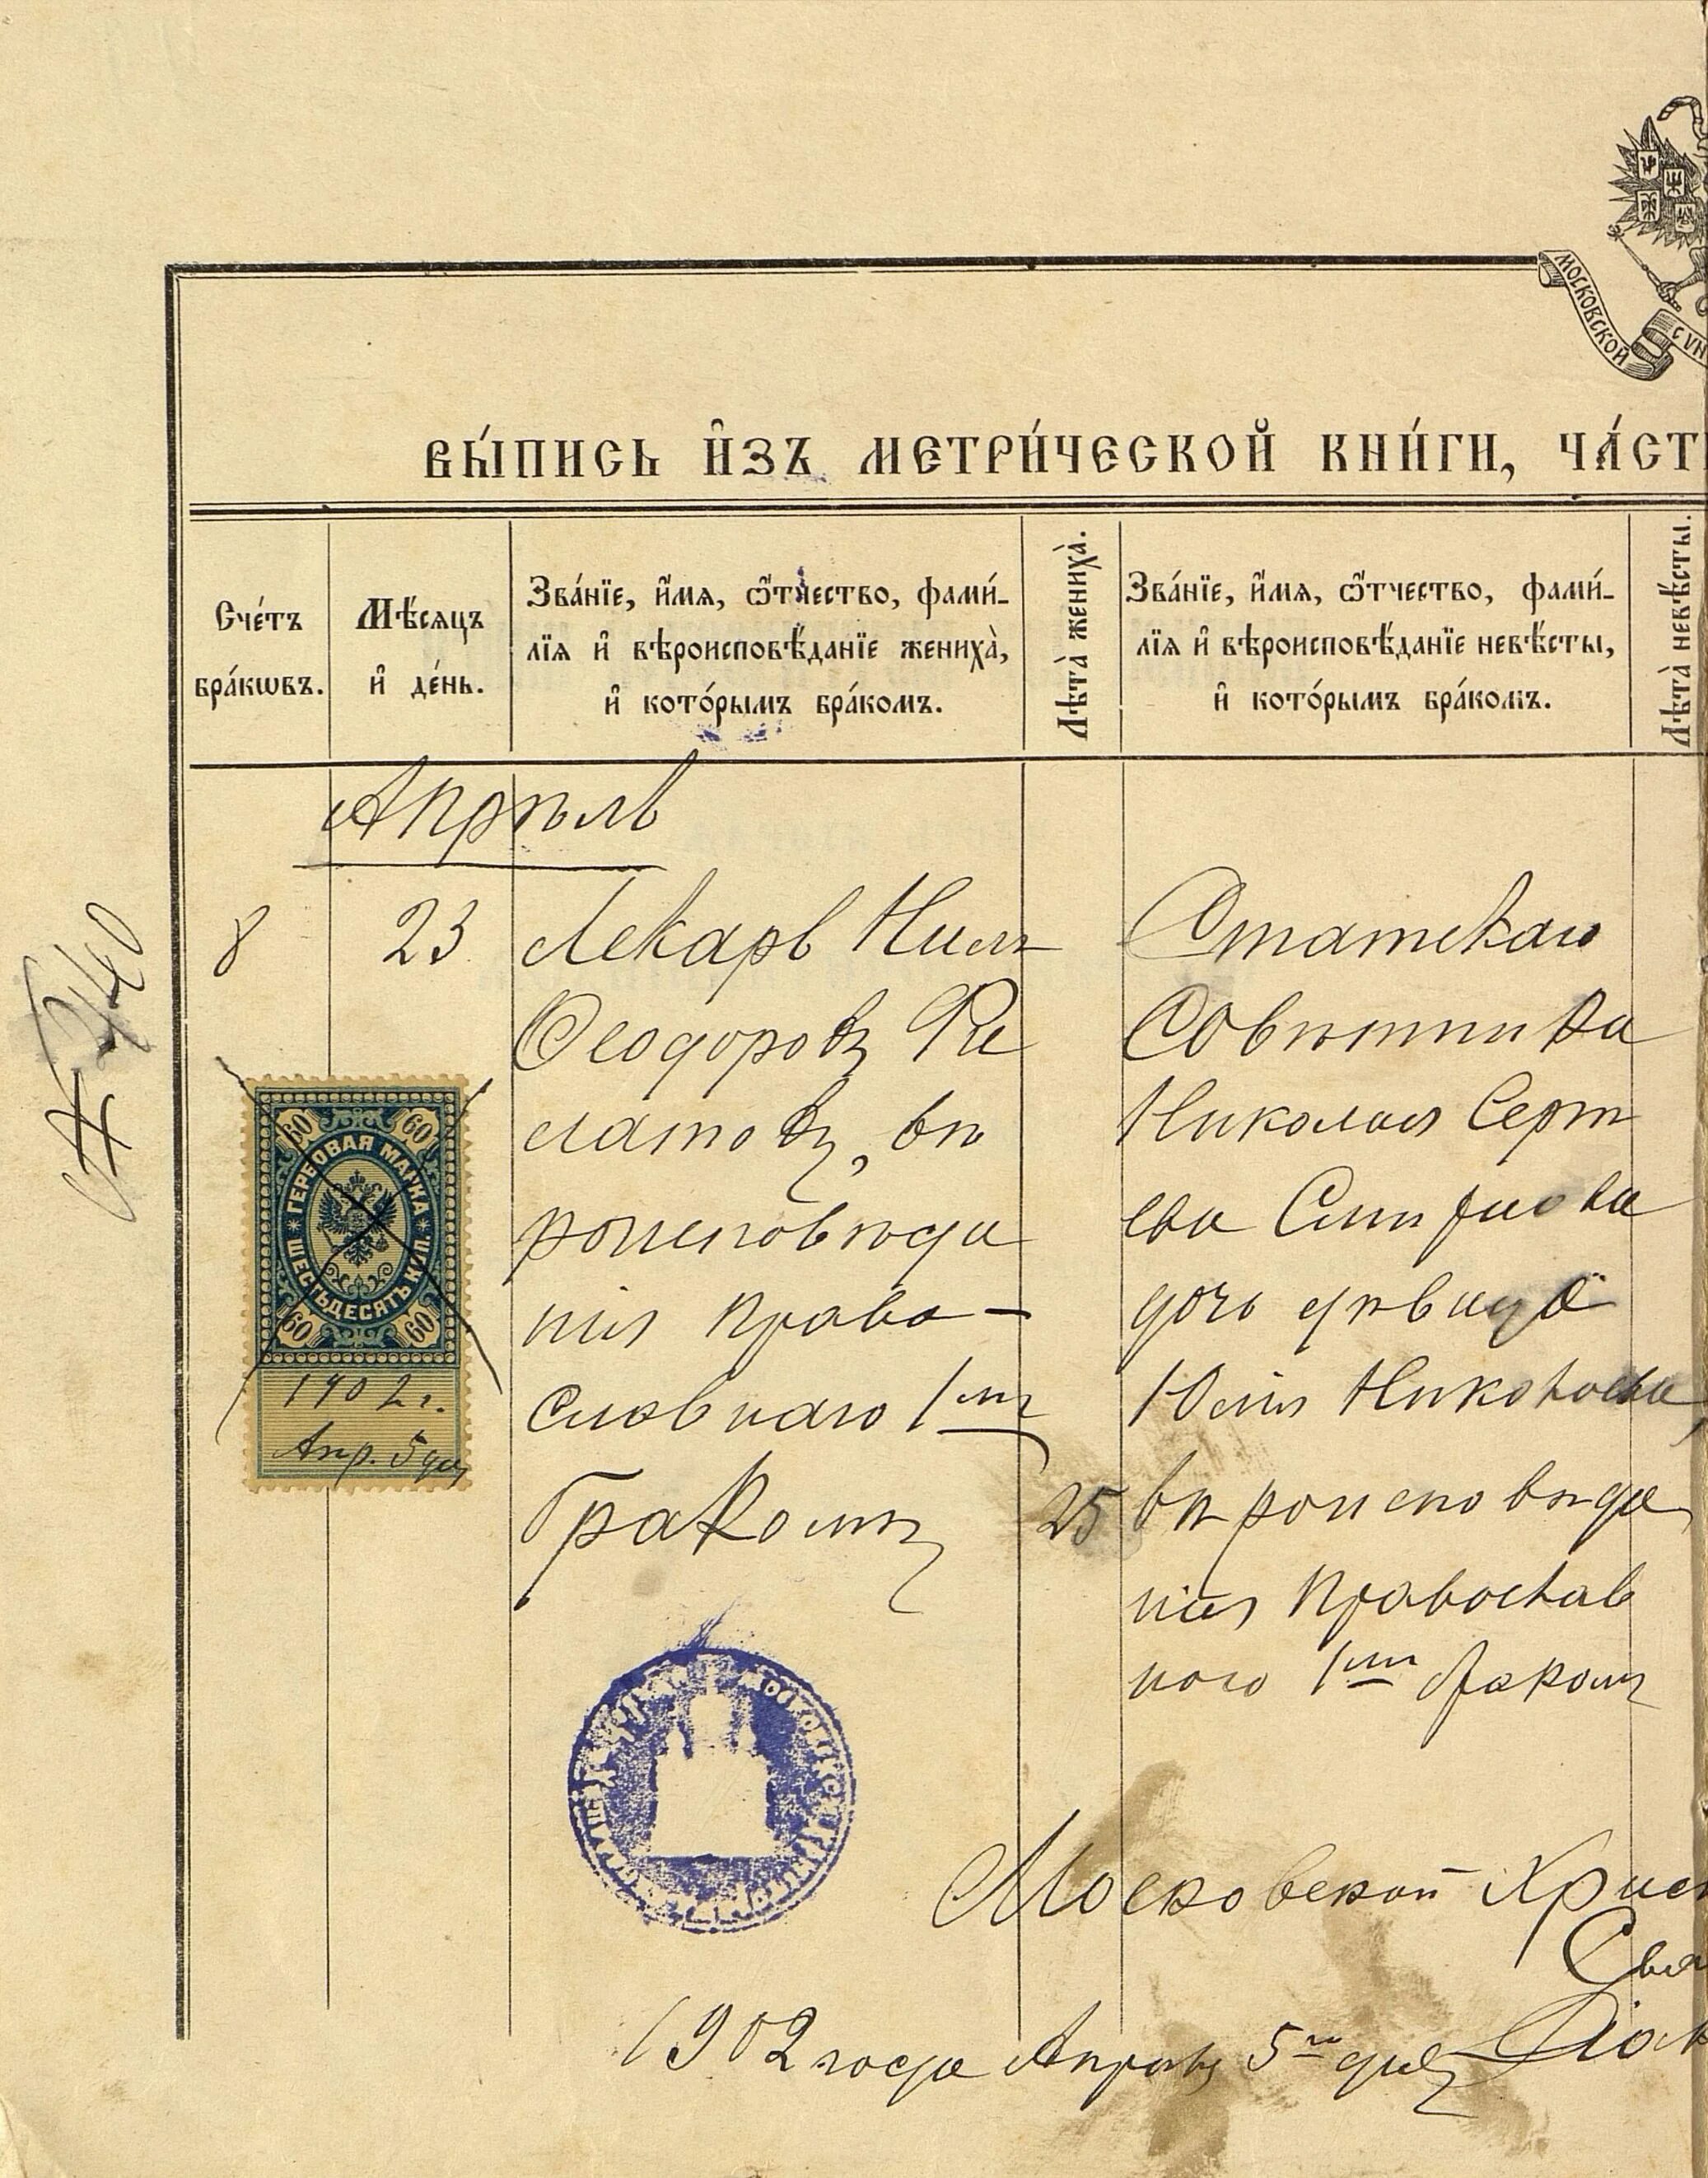 МОСКОВСКОЙ
ВЫ́ПИСЬ И҆ЗЪ МЕТРИ́ЧЕСКОЙ КНИ́ГИ, ЧА́СТ
Сче́тъ бра́кѡвъ.
Мѣ́сяцъ и҆ де́нь.
Зва́нїе, и҆́мѧ, ѻ҆́тчество, фами́-
лїѧ и҆ вѣроисповѣ́данїе жениха̀,
и҆ кото́рымъ бра́комъ.
Лѣта̀ жениха̀.
Зва́нїе, и҆́мѧ, ѻ҆́тчество, фами́-
лїѧ и҆ вѣроисповѣ́данїе невѣ́сты,
и҆ кото́рымъ бра́комъ.
Лѣта̀ невѣ́сты.
Апрѣль
8
23
Лекарь Нилъ
Ѳеодоровъ Фи
латовъ, вѣ
роисповѣда
нія право-
славнаго 1мъ
бракомъ
25
Статскаго
Совѣтника
Николая Серг
ева Смирнова
дочь дѣвица
Юлія Николаева,
вѣроисповѣда
нія Православ
наго 1мъ бракомъ
60 60
ГЕРБОВАЯ МАРКА
ШЕСТЬДЕСЯТЪ КОП.
60 60
1902 г.
Апр. 5 дня
Московской Христ
Свя
1902 года Апрѣля 5го дня